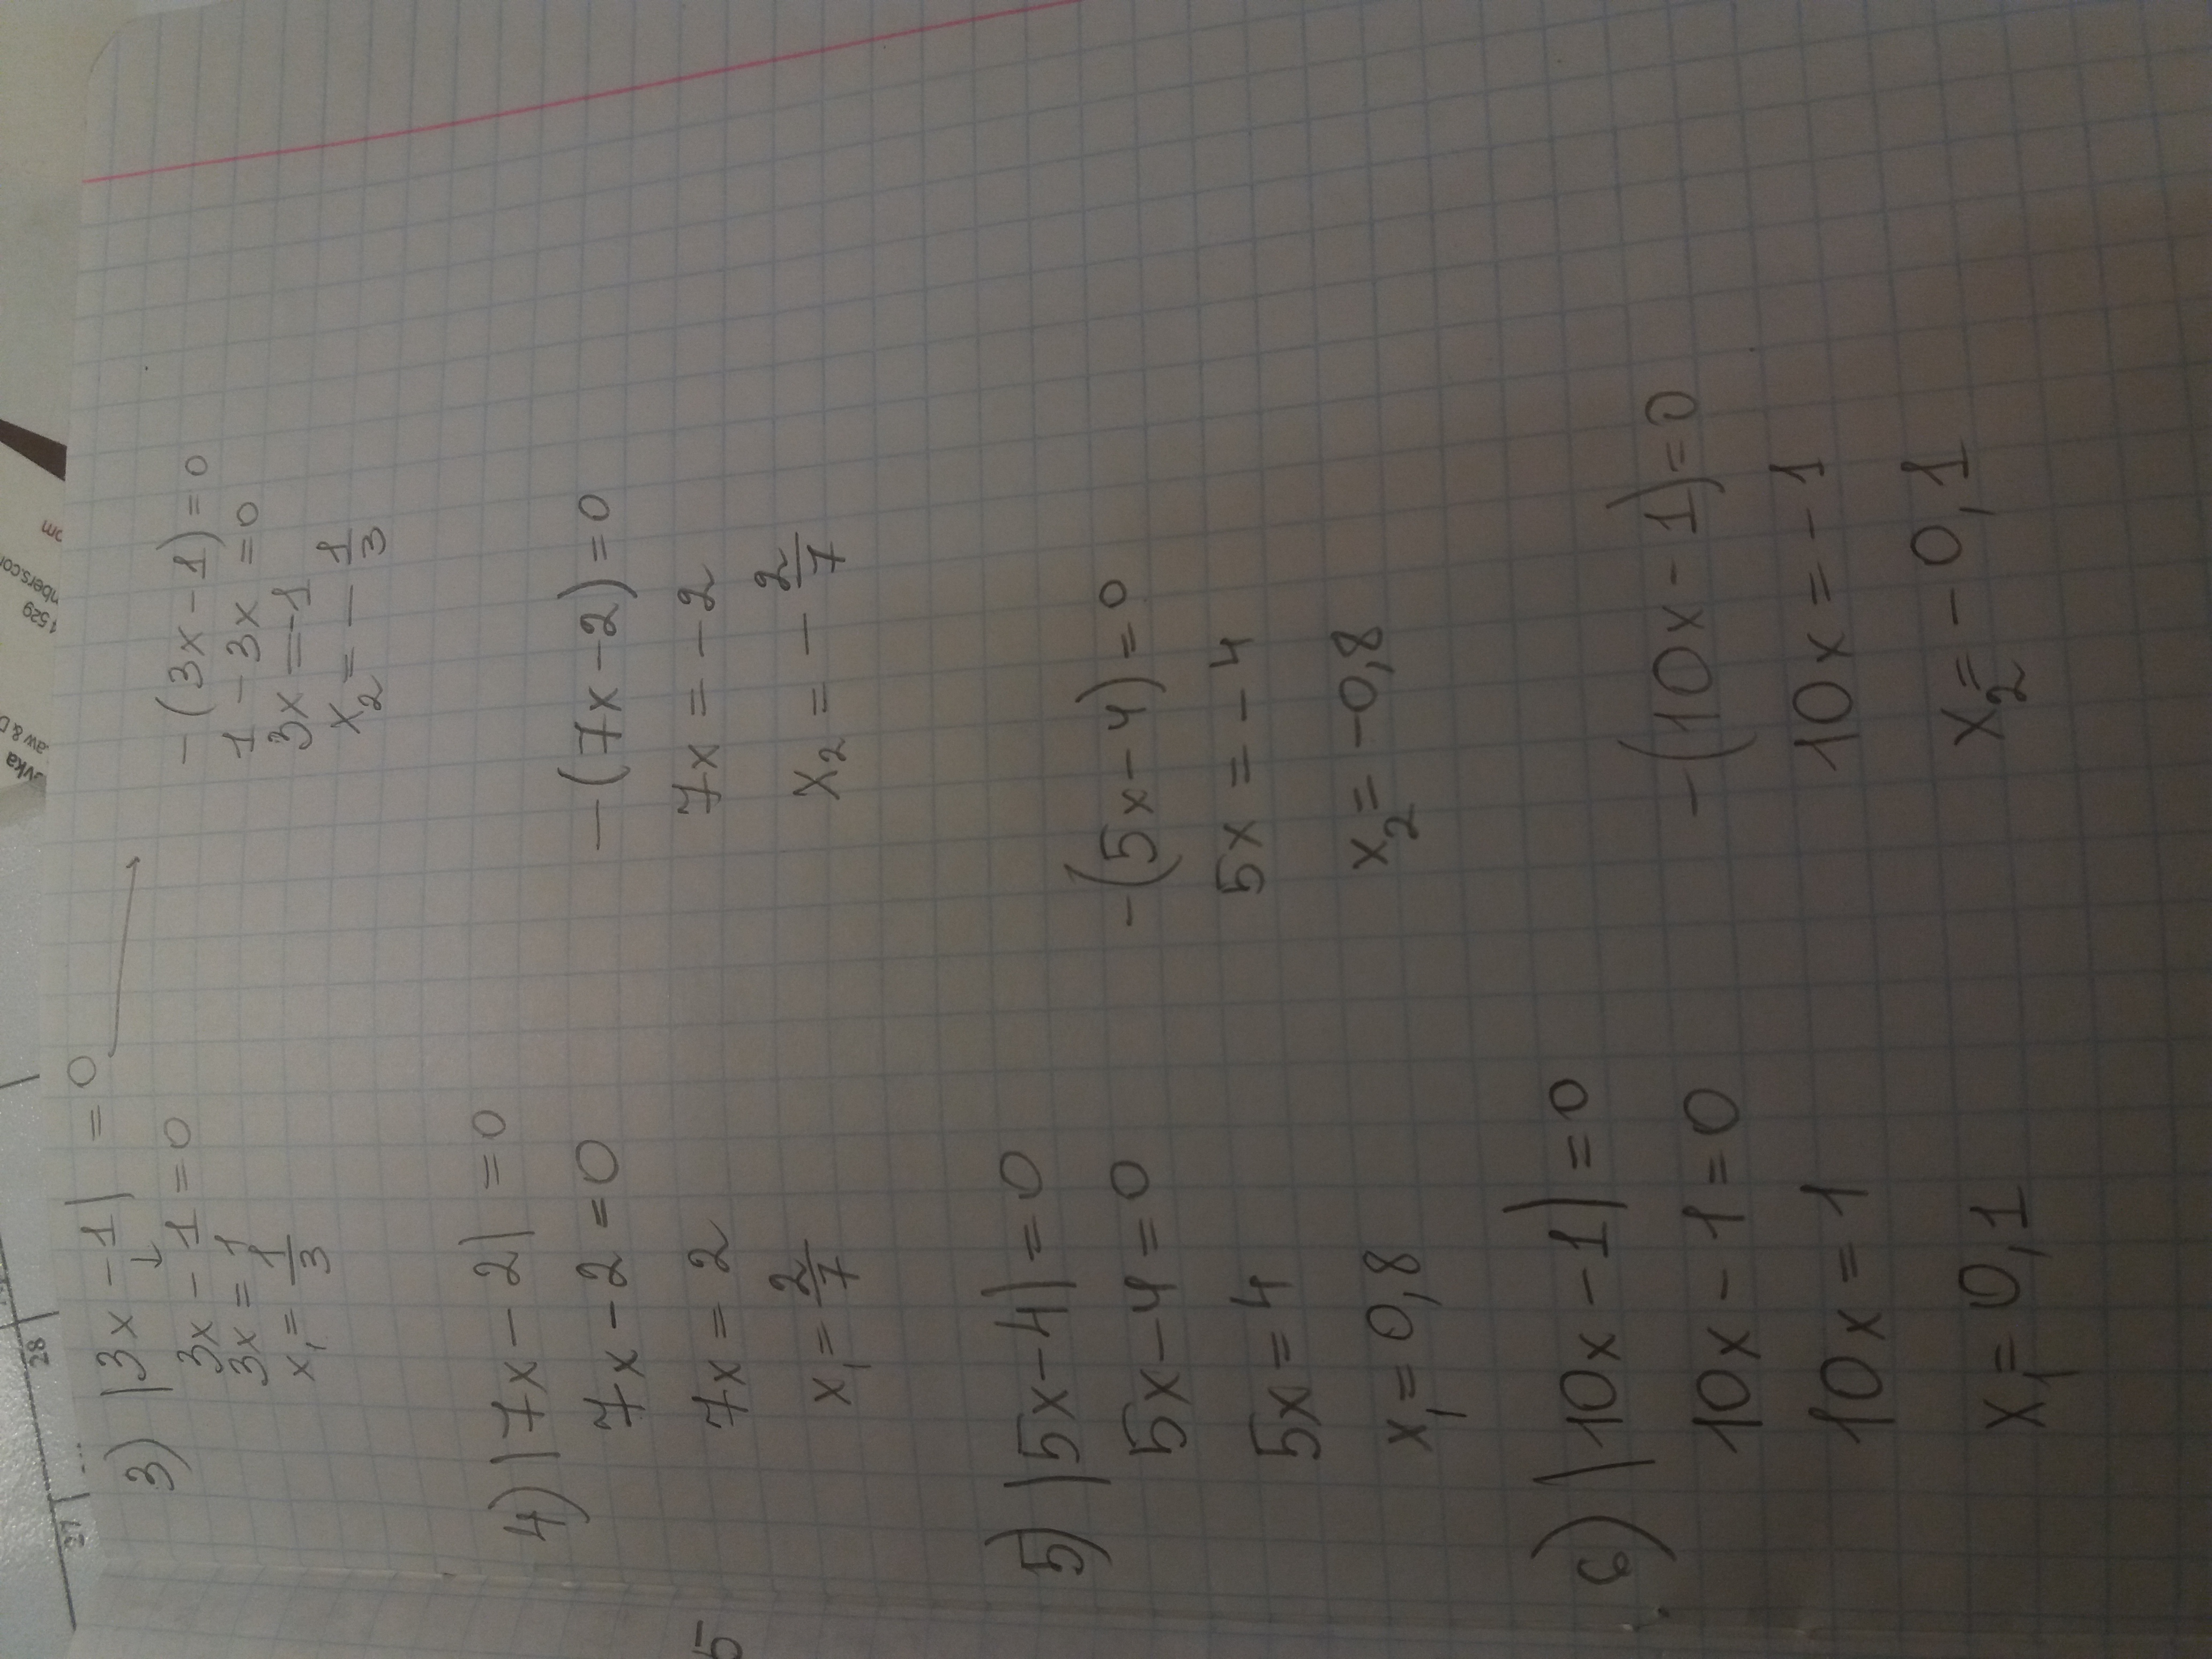 3) |3x - 1| = 0
3x - 1 = 0
3x = 1
x₁ = 1/3
-(3x - 1) = 0
1 - 3x = 0
3x = -1
x₂ = - 1/3
4) |7x - 2| = 0
7x - 2 = 0
7x = 2
x₁ = 2/7
-(7x - 2) = 0
7x = -2
x₂ = - 2/7
5) |5x - 4| = 0
5x - 4 = 0
5x = 4
x₁ = 0,8
-(5x - 4) = 0
5x = -4
x₂ = -0,8
6) |10x - 1| = 0
10x - 1 = 0
10x = 1
x₁ = 0,1
-(10x - 1) = 0
10x = -1
x₂ = -0,1
5
27
28
1529